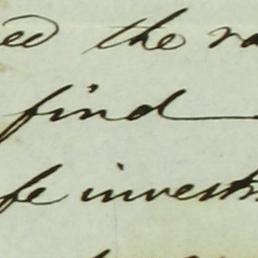 ed the ra
find
fe invest